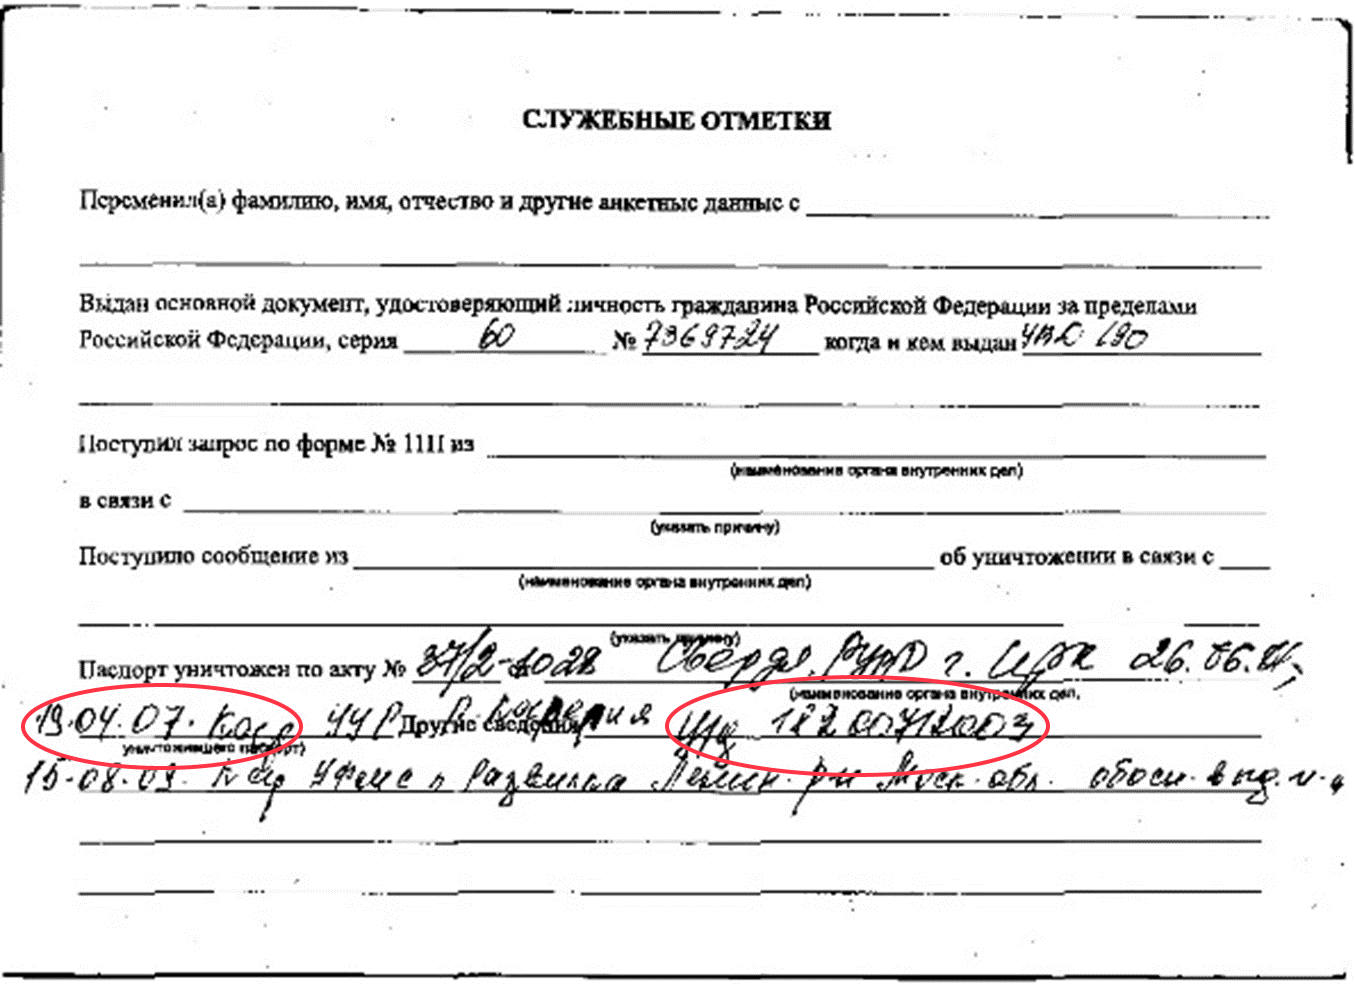 СЛУЖЕБНЫЕ ОТМЕТКИ
Переменил(а) фамилию, имя, отчество и другие анкетные данные с
Выдан основной документ, удостоверяющий личность гражданина Российской Федерации за пределами
Российской Федерации, серия 60 № 7369724 когда и кем выдан УВД 190
Поступил запрос по форме № 1П из
(наименование органа внутренних дел)
в связи с
(указать причину)
Поступило сообщение из об уничтожении в связи с
(наименование органа внутренних дел)
(указать причину)
Паспорт уничтожен по акту № 37/2-1028 г. 26.06.
(наименование органа внутренних дел,
19.04.07. УУР Другие сведения у/д 18200712003
уничтожившего паспорт)
15.08.09. УФМС п Развилка Ленин. р-н Моск. обл.